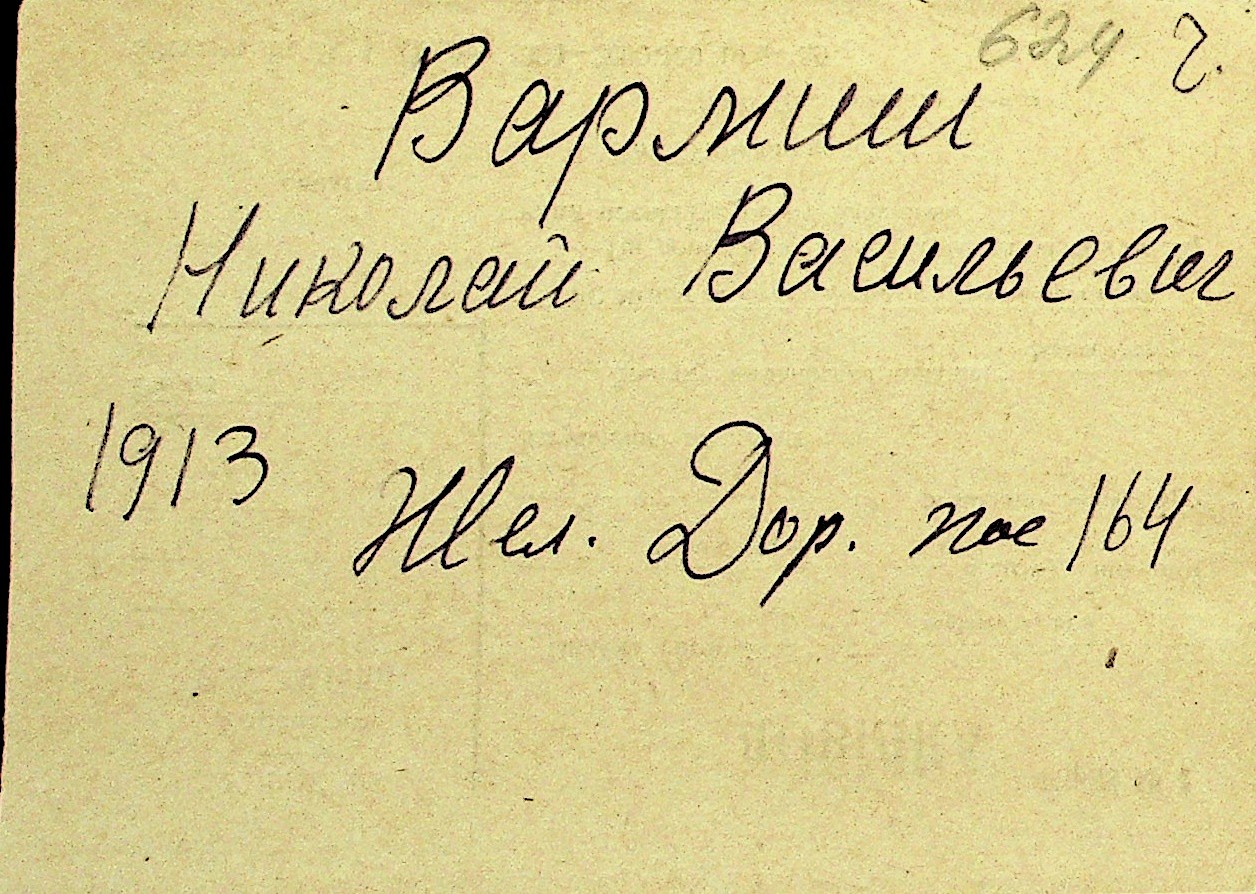 624 г.
Вармиш
Николай Васильевич
1913 Жел. Дор. пос 164